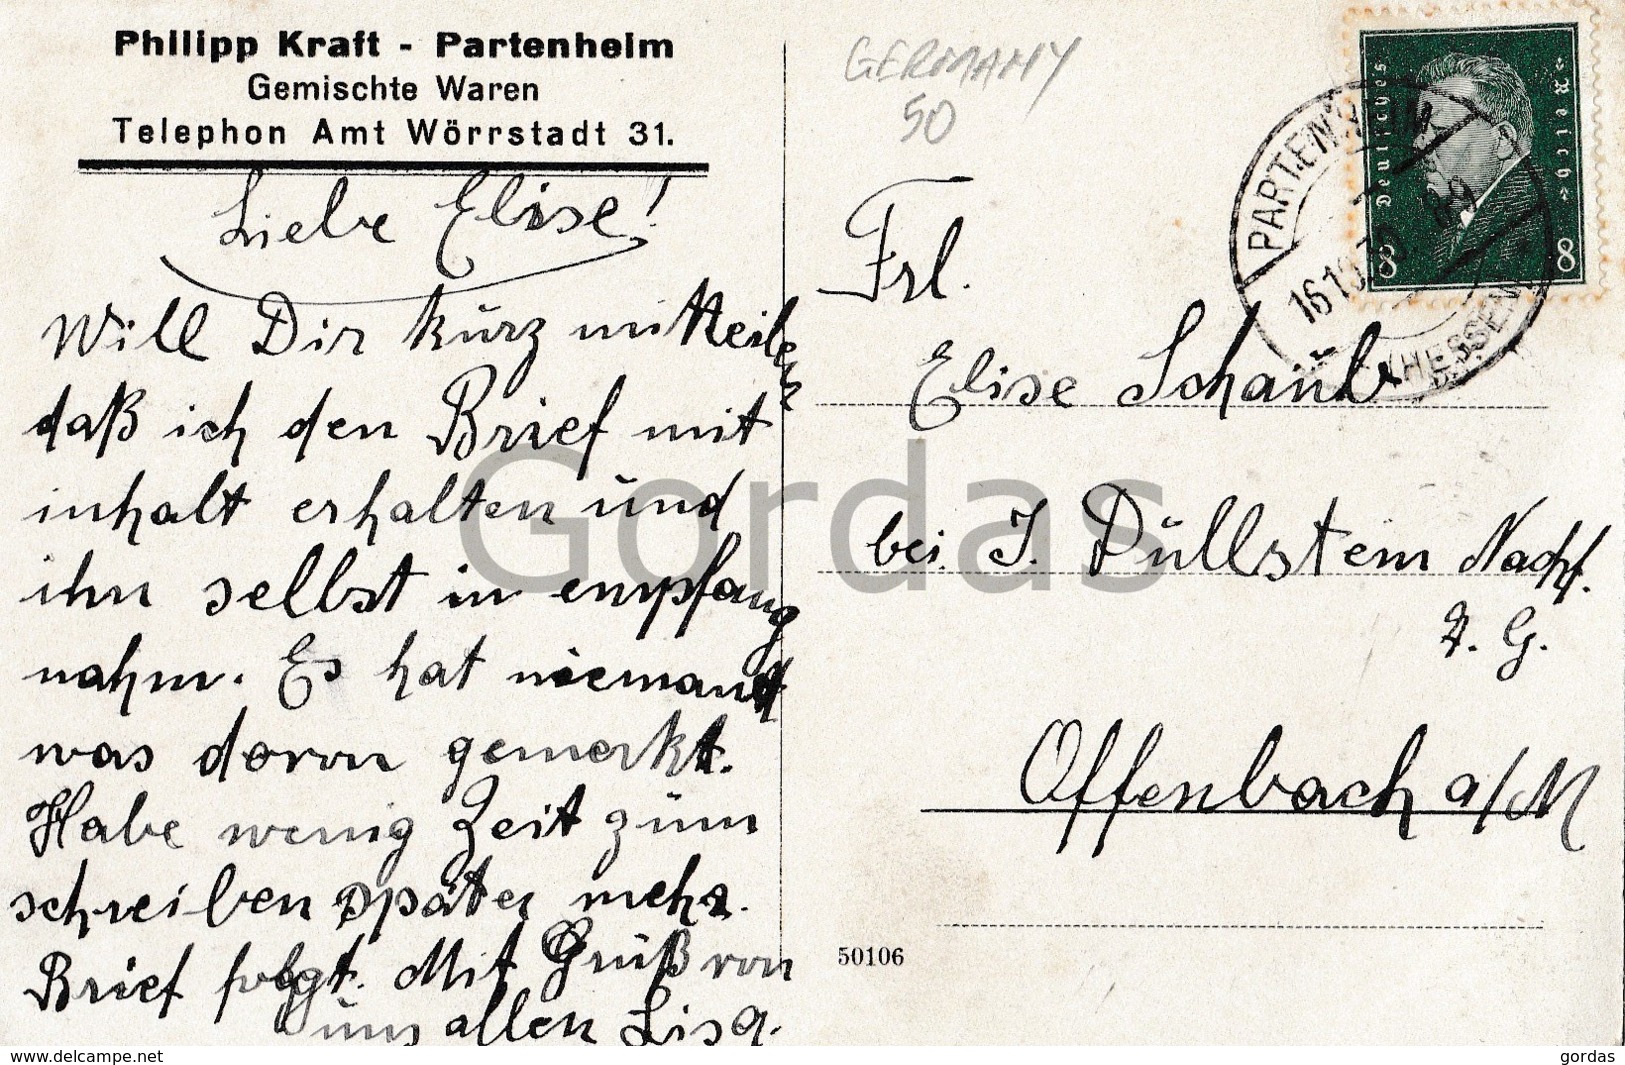 Philipp Kraft - Partenheim
Gemischte Waren
Telephon Amt Wörrstadt 31.
Liebe Elise!
Will Dir kurz mitteilen
daß ich den Brief mit
inhalt erhalten und
ihn selbst in empfang
nahm. Es hat niemand
was davon gemerkt.
Habe wenig Zeit zum
schreiben später mehr.
Brief folgt. Mit Gruß von
uns allen Lisa.
GERMANY
50
Deutsches Reich
8 8
PARTENHEIM
(HESSEN)
Frl.
Elise Schaub
bei J. Düllstein Nachf.
G.
Offenbach a/M
50106
Gordas
www.delcampe.net
gordas